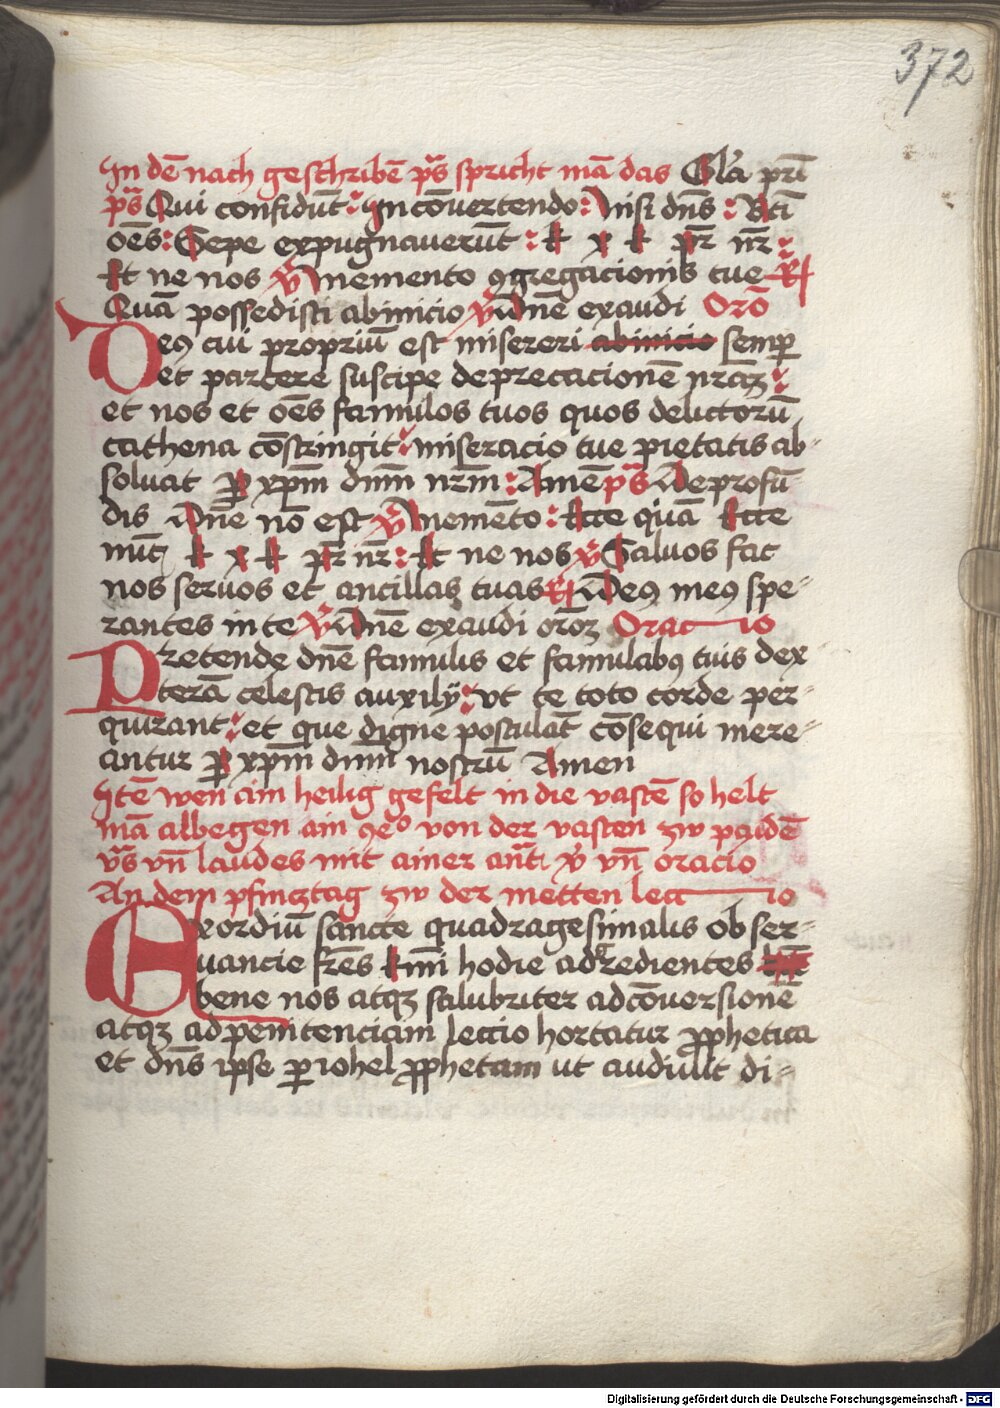 372
In dē nach geschribē ps̄ spricht mā das Gl'a pri
ps̄ Qui confidūt : In cōuertendo : Nisi dn̄s : Bti
oēs : Sepe expugnauerūt : k x k pr̄ nr̄ :
Et ne nos v̄ Memento ꝯgregacionis tue R
Quā possedisti abinicio v̄ Dn̄e exaudi Orō
Deꝯ cui propriū est misereri abinicio semꝑ
et parcere suscipe deprecacionē nr̄aꝫ :
et nos et oēs famulos tuos quos delictorū
cathena cōstringit : miseracio tue pietatis ab-
soluat ꝑ xp̄m dnm nr̄m : Amē ps̄ De profū-
dis Dn̄e nō est v̄ Memēto : Ecce quā Ecce
nūc k x k pr̄ nr̄ : Et ne nos v̄ Saluos fac
nos seruos et ancillas tuas R Deꝯ meꝯ spe-
rantes in te v̄ Dn̄e exaudi orōꝫ Oracio
Pretende dn̄e famulis et famulabꝯ tuis dex-
terā celestis auxilÿ : vt te toto corde per-
quirant : et que digne postulāt cōsequi mere-
antur ꝑ xp̄m dnm nostrū Amen
Itē wen aim heilig gefelt in die vastē so helt
mā albegen ain ꝯeo von der vasten zw paidē
v̄s vn̄ laudes mit ainer ant v̄ vn̄ oracio
An dem pfincztag zw der metten leccio
Exordiū sancte quadragesimalis obser-
uancie fr̄es kmi hodie adredientes
bene nos atqꝫ salubriter ad cōuersionē
atqꝫ ad penitenciam leccio hortatur ꝓphetica
et dn̄s ipse ꝑ iohel ꝓphetam ut audiuit di-
Digitalisierung gefördert durch die Deutsche Forschungsgemeinschaft - DFG